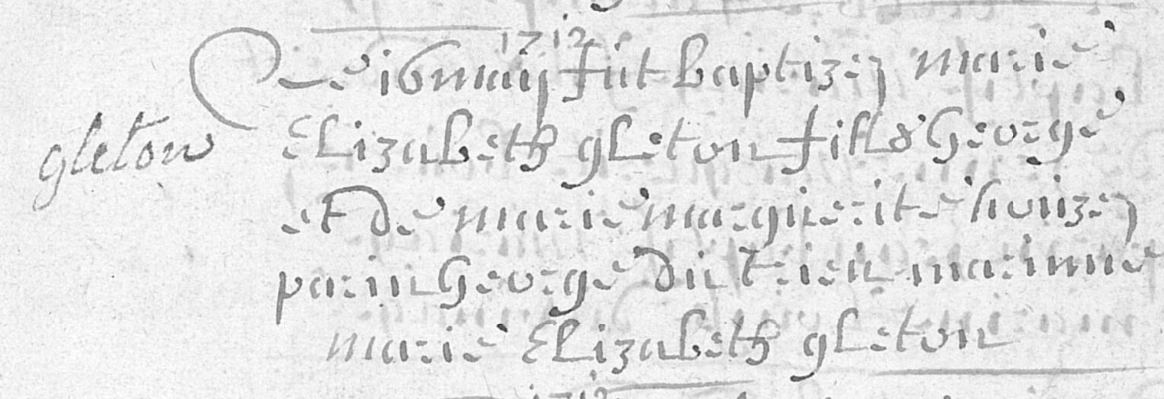 1712
Le 16 maij fut baptizez marie
gleton
Elizabeth gleton fill d George
et de marie marguerite houzez
parin George du trieu marinne
marie Elizabeth gleton